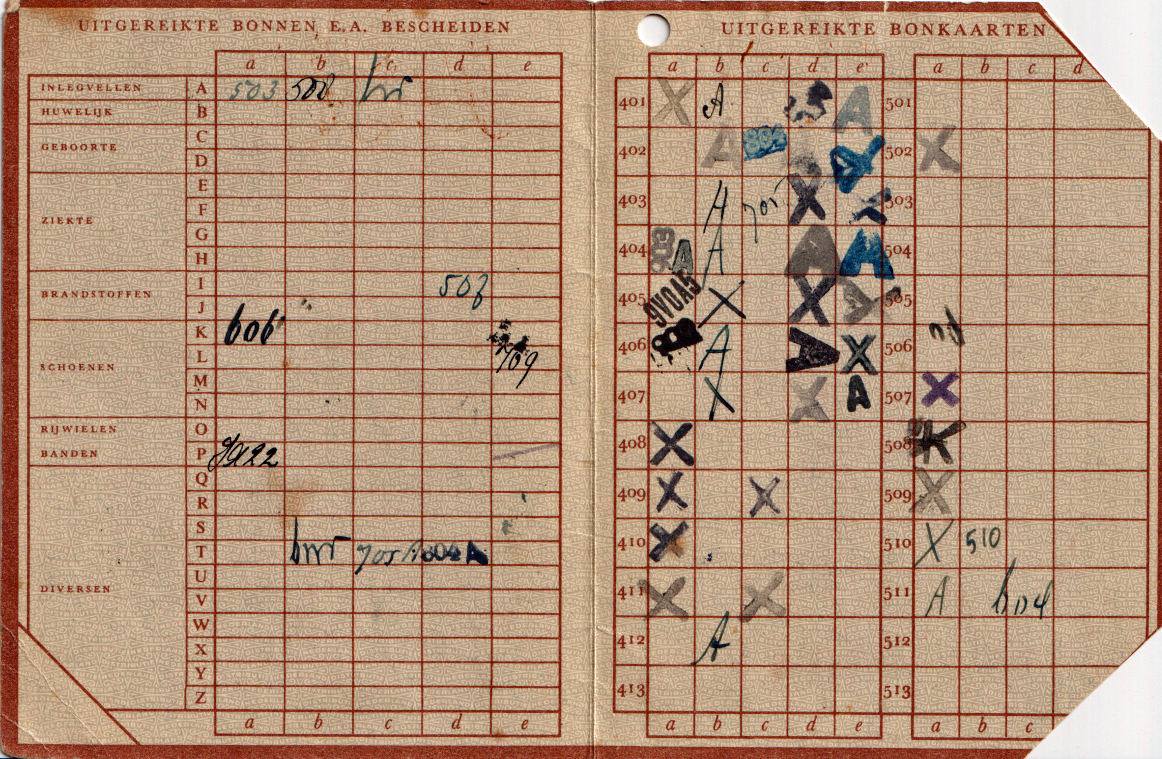 UITGEREIKTE BONNEN E.A. BESCHEIDEN
a b c d e
INLEGVELLEN A 503 502
HUWELIJK B
GEBOORTE C
D
E
ZIEKTE F
G
H
BRANDSTOFFEN I 503
J
K 606
SCHOENEN L 709
M
N
RIJWIELEN O
BANDEN P
Q
R
S
T 705 A 804 A
DIVERSEN U
V
W
X
Y
Z
a b c d e
UITGEREIKTE BONKAARTEN
a b c d e a b c d
401 X A A 501
402 A X 502 X
403 A 705 X X 503
404 903 A A A A 504
405 X X A 505
406 A A X 506
407 X X A 507 X
408 X 508 X
409 X X 509 X
410 X 510 X 510
411 X X 511 A
412 A 512
413 513
a b c d e a b c